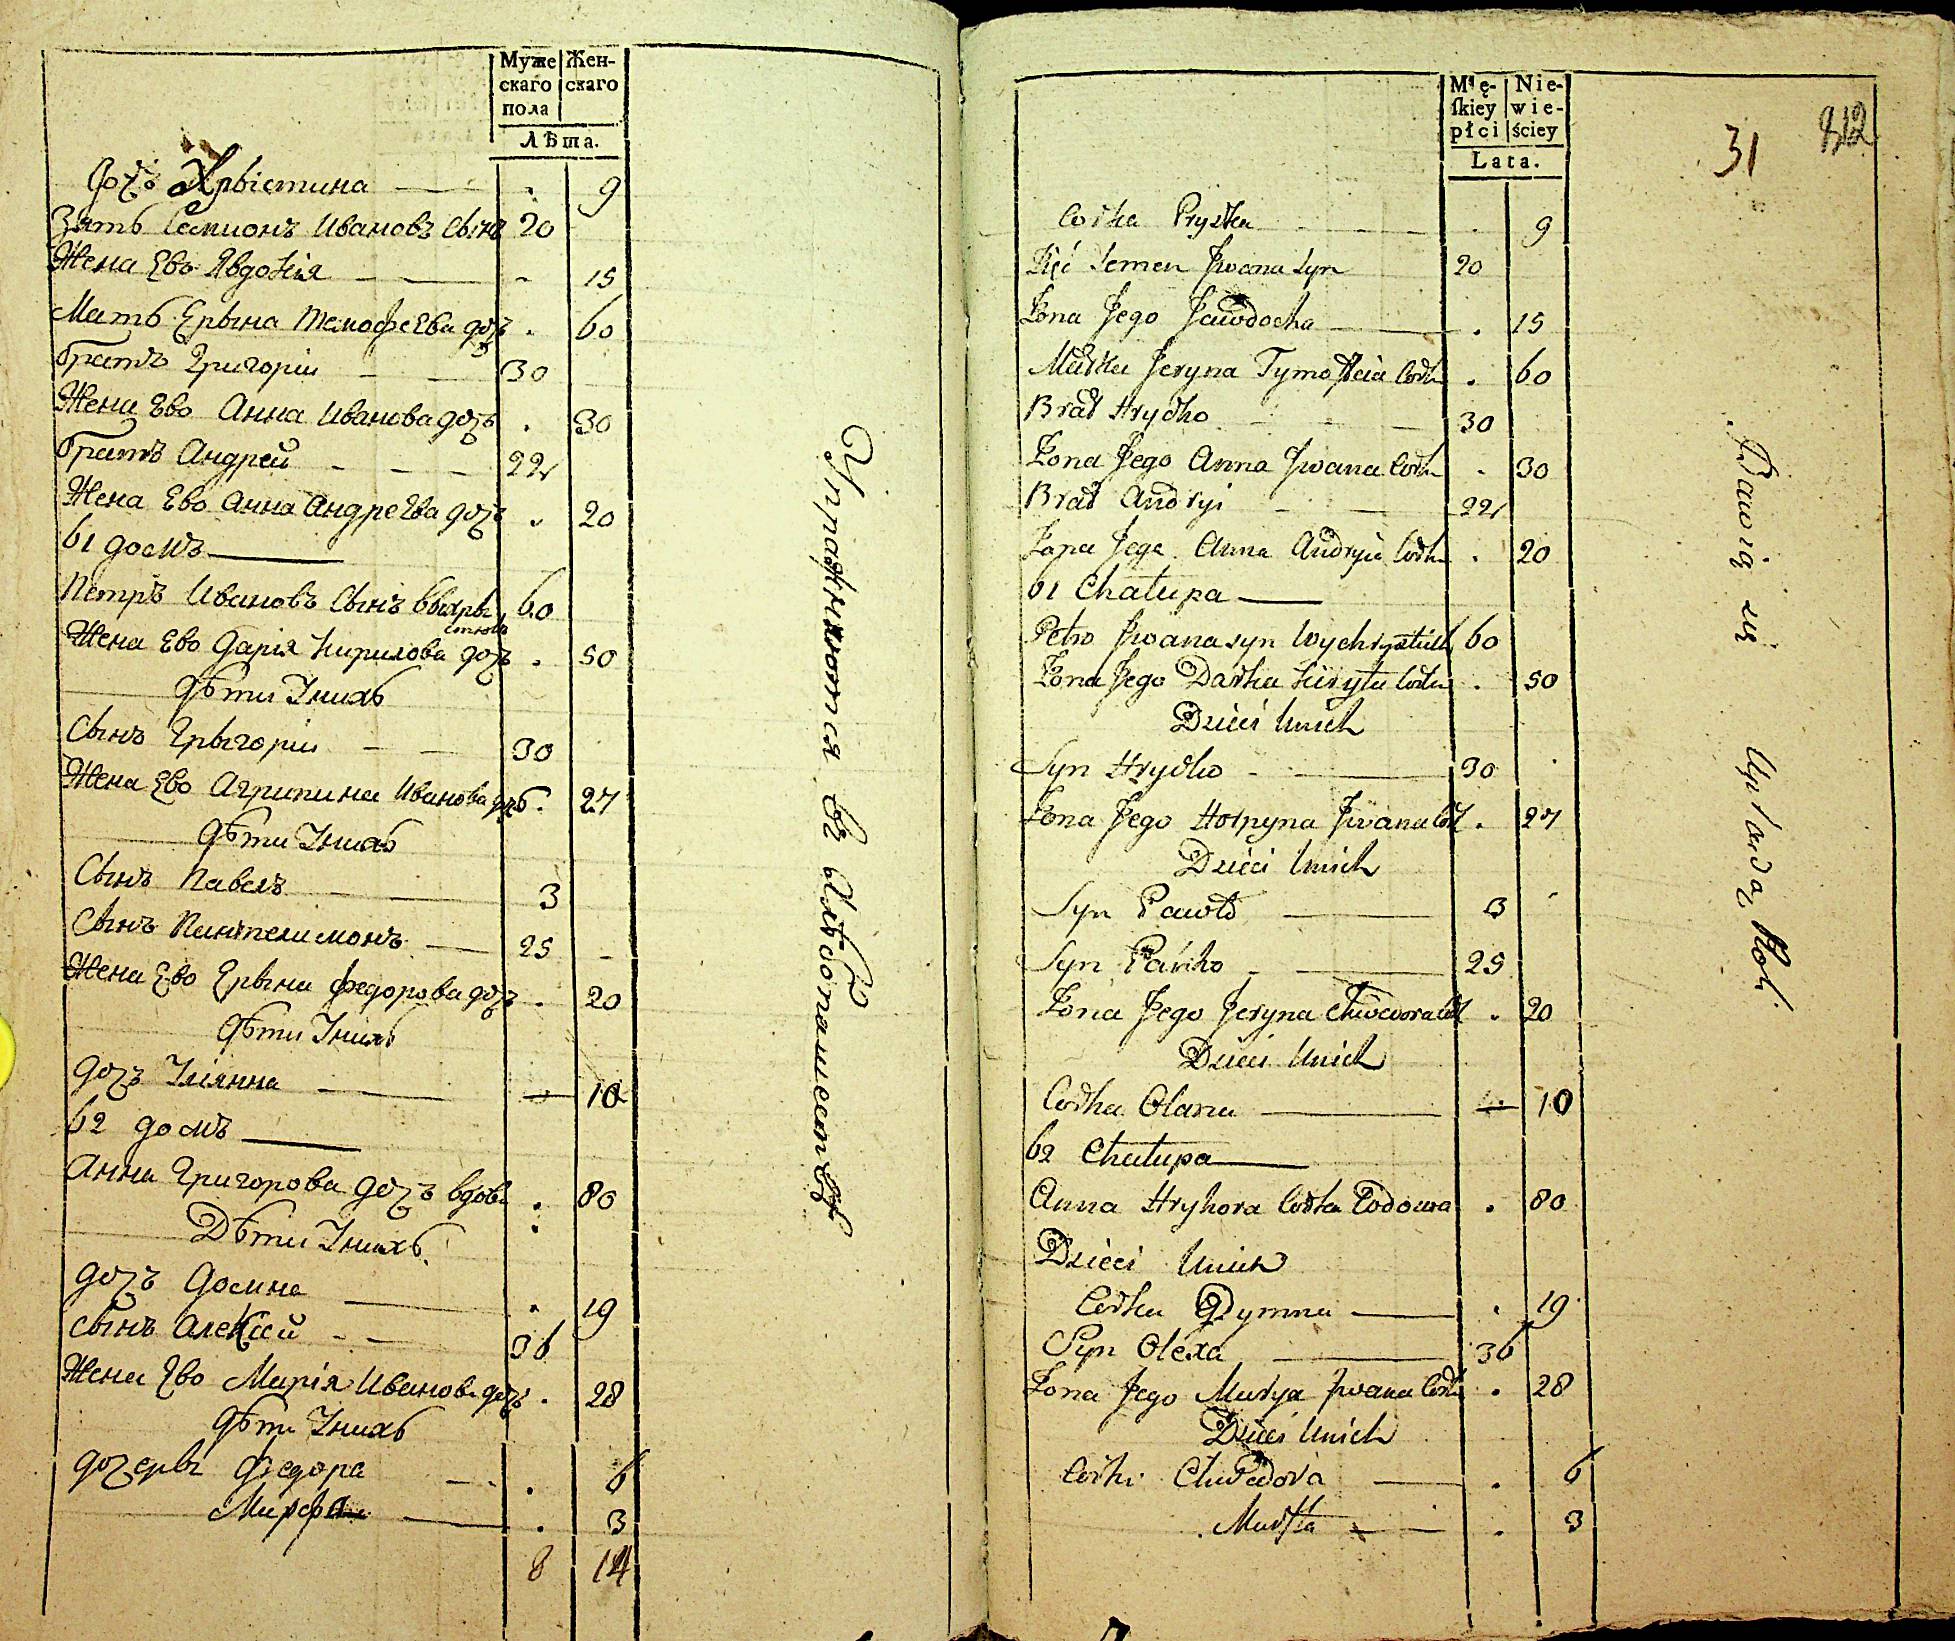 Муже Жен-
скаго скаго
пола
Лѣта.
дочь Хрыстина . 9
Зять Семионъ Ивановъ сынъ 20
Жена Ево Явдокія - 15
Мать Ерына Темофеева дочь . 60
братъ Григоріи 30
Жена Ево Анна Иванова дочъ . 30
братъ Андрей 22
Жена Ево Анна Андреева дочъ . 20
61 домъ
Петръ Ивановъ Сынъ 60
Жена Ево Дарія Кирилова дочъ . 50
дѣти Унихъ
Сынъ Грыгоріи 30
Жена Ево Агрипина Иванова дочь . 27
дѣти Унихъ
Сынъ Павелъ 3
Сынъ Пантелимонъ 25 -
Жена Ево Ерына Федорова дочъ . 20
дѣти Унихъ
дочъ Уліянна 10
62 домъ
Анна Григорова дочъ вдова . 80
Дѣти Унихъ
дочъ Домна . 19
сынъ Алексей 36
Жена Ево Марія Иванова дочъ . 28
дѣти Унихъ
дочеры Федора . 6
Марфа . 3
8 14
Упражняются въ хлѣбопашествѣ
Męs- Nie-
skiey wie-
płci ściey
Lata.
31
812
Corka Pryska . 9
Zięć Semen Jwana Syn 20
Zona Jego Jawdocha . 15
Matka Jeryna Tymofieia Corka . 60
Brat Hryćko 30
Zona Jego Anna Jwana Corka . 30
Brat Andryi 22
Zona Jego Anna Andryia Corka . 20
61 Chałupa
Petro Jwana syn Wychrystiuk 60
Zona Jego Darka Kiryła Corka . 50
Dzieci Unich
Syn Hryćko 30
Zona Jego Horpyna Jwana Cor . 27
Dzieci Unich
Syn Pawło 3
Syn Pańko 25
Zona Jego Jeryna Chwedora Cor . 20
Dzieci Unich
Corka Olana 10
62 Chałupa
Anna Hryhora Corka Wdowa . 80
Dzieci Unich
Corka Dymna . 19
Syn Olexa 36
Zona Jego Marya Jwana Corka . 28
Dzieci Unich
Corki Chwedora . 6
Marta . 3
Bawią się Uprawą Roli